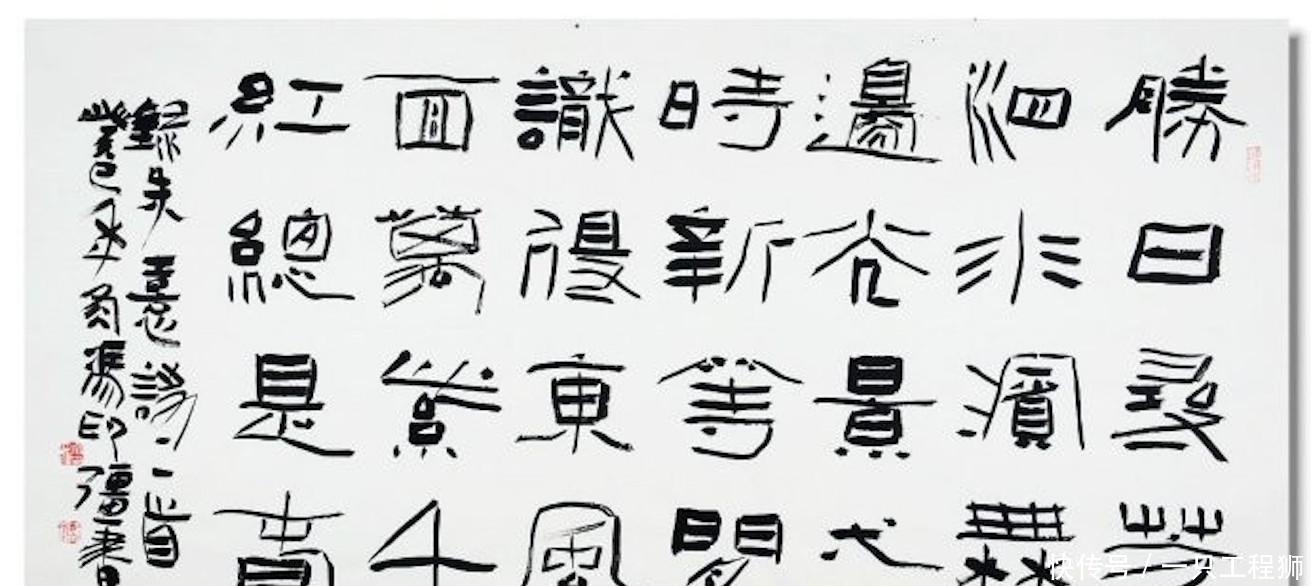 勝日尋芳
泗水濱無
邊光景弌
時新等閒
識得東風
面萬紫千
紅總是春
錄朱熹詩一首
癸巳年馮印疆書
快传号 / 一只工程狮